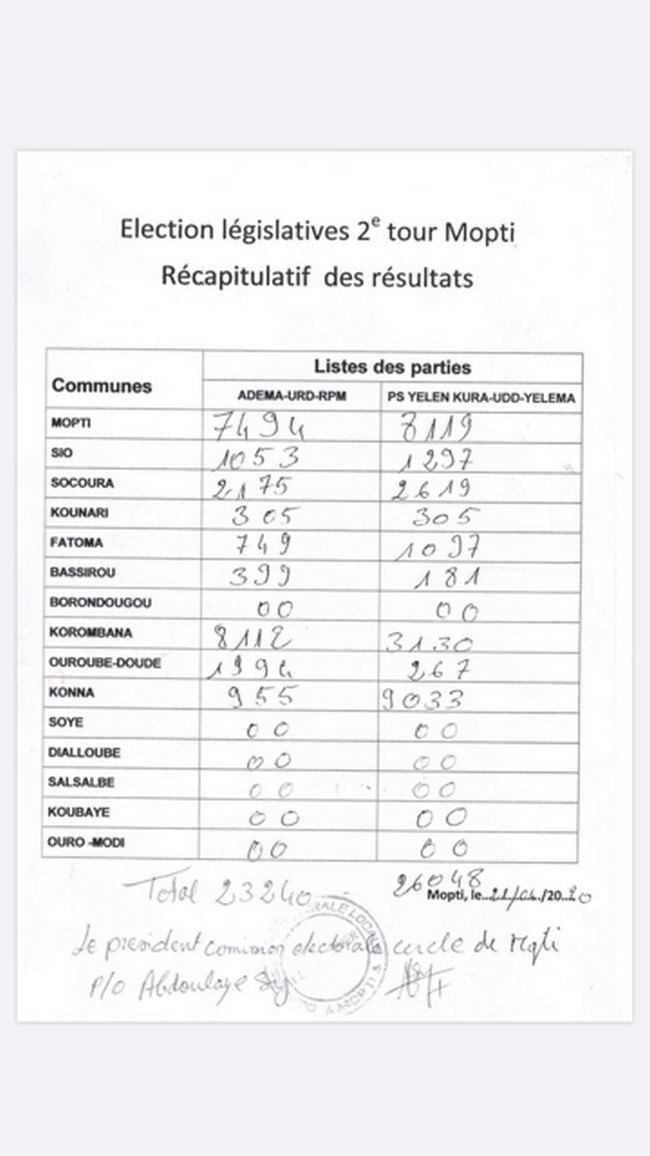 Election législatives 2e tour Mopti
Récapitulatif des résultats
Communes Listes des parties
ADEMA-URD-RPM PS YELEN KURA-UDD-YELEMA
MOPTI 7494 8119
SIO 1053 1297
SOCOURA 2175 2619
KOUNARI 305 305
FATOMA 749 1097
BASSIROU 399 181
BORONDOUGOU 00 00
KOROMBANA 8112 3130
OUROUBE-DOUDE 1994 267
KONNA 955 9033
SOYE 00 00
DIALLOUBE 00 00
SALSALBE 00 00
KOUBAYE 00 00
OURO -MODI 00 00
Total 23240 26048
Mopti, le..21/04./20..20
Le president commission electorale cercle de Mopti
P/O Abdoulaye
A MOPTI